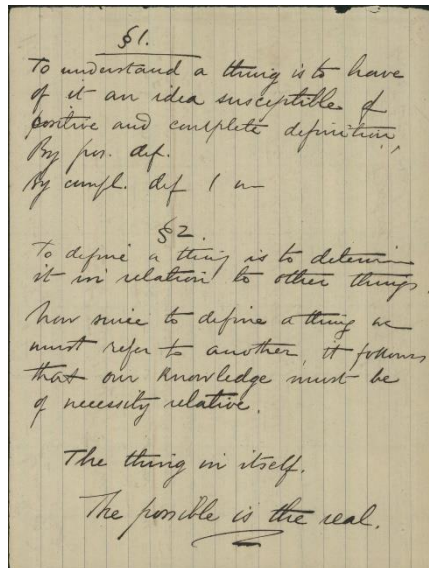 §1.
To understand a thing is to have
of it an idea susceptible of
positive and complete definition,
By pos. def.
By compl. def I m
§2.
To define a thing is to determin
it in relation to other things
Now since to define a thing we
must refer to another, it follows
that our knowledge must be
of necessity relative.
The thing in itself.
The possible is the real.